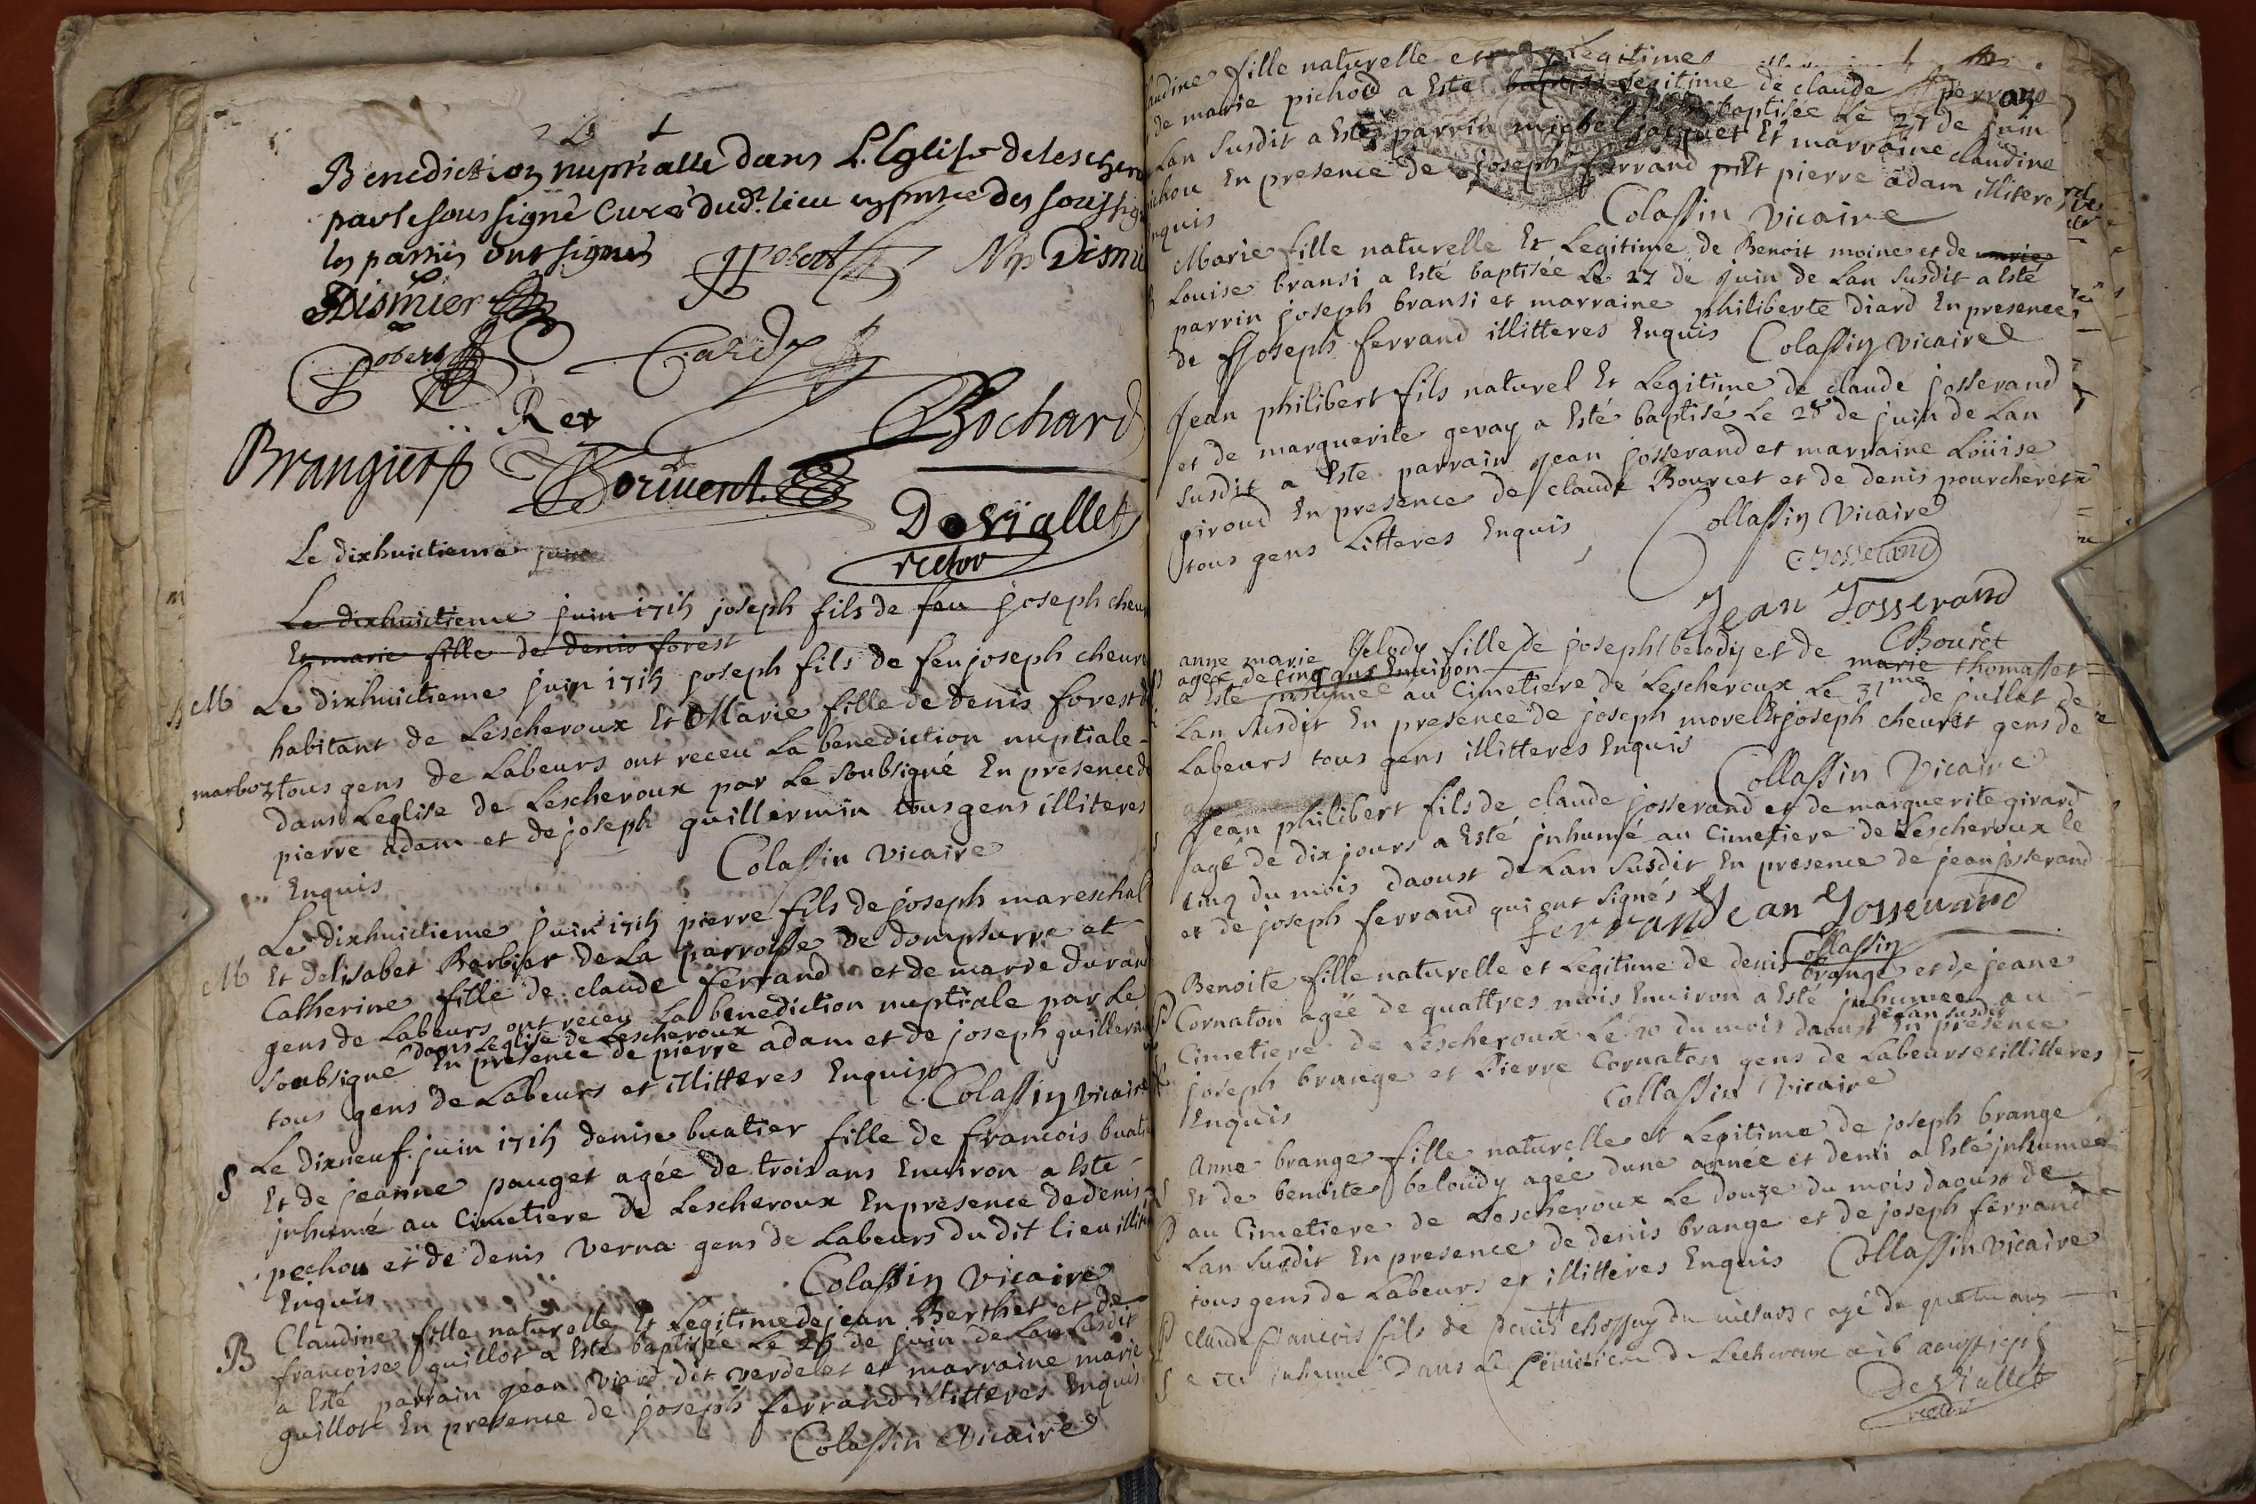 Benediction nuptialle dans L'Eglise de lescher
par le soussigné Curé dud.t lieu en pnce des soussig
les parties ont signé
Dismier
Robert
Cardy
Rey
Brangier
Bochard
Borivent
De Viallet
rector
Le dixhuictieme juin
Le dixhuictieme juin 1715 joseph fils de feu joseph cheu
Et marie fille de denis forest
M Le dixhuictieme juin 1715 joseph fils de feu joseph cheure
habitant de Lescheroux Et Marie fille de denis forest d
marboz tous gens de Labeurs ont receu La benediction nuptiale
dans Leglise de Lescheroux par Le soubsigné En presence de
pierre adam et de joseph guillermin tous gens illiteres
Enquis Colassin vicaire
Le dixhuictieme juin 1715 pierre fils de joseph mareschal
M Et delisabet Barbier de La parroisse de dompsurre et
Catherine fille de claude ferrand et de marie durand
gens de Labeurs ont receu La benediction nuptiale par Le
dans Leglise de Lescheroux
soubsigné En presence de pierre adam et de joseph guillermin
tous gens de Labeurs et illitteres Enquis Colassin vicaire
S Le dixneuf juin 1715 denise buatier fille de francois buati
Et de jeanne pauget agée de trois ans Environ a Esté
jnhumé au Cimetiere de Lescheroux En presence de denis
pochon et de denis verna gens de Labeurs du dit lieu illit
Enquis Colassin vicaire
B Claudine fille naturelle Et Legitime de jean Berthet et de
francoise guillot a Esté baptisée Le 25 de juin de Lan susdit
a Esté parrain jean viard dit verdelet et marraine marie
guillot En presence de joseph ferrand illitteres Enquis
Colassin vicaire
audine fille naturelle et Legitimes
de marie pichod a Esté Legitime de claude perraud
baptisée Le 27 de juin
Lan susdit a Esté parrin michel jacquet Et marraine claudine
ichou En presence de joseph ferrand pnt pierre adam illiteres
nquis Colassin vicaire
Marie fille naturelle Et Legitime de Benoit moine et de marie
Louise bransi a Esté baptisée Le 27 de juin de Lan susdit a Esté
parrin joseph bransi et marraine philiberte diard En presence
de joseph ferrand illitteres Enquis Colassin vicaire
Jean philibert fils naturel Et Legitime de claude josserand
et de marguerite geray a Esté baptisé Le 28 de juin de Lan
susdit a Esté parrain jean josserand et marraine Loüise
piroud En presence de claude Bourcet et de denis pourcheret
tous gens Litteres Enquis Collassin Vicaire
C Josserand
Jean Josserand
C Bourcet
anne marie belody fille de joseph belody et de marie thomasset
agée de cinq ans Environ
a Esté jnhumée au Cimetiere de Lescheroux Le 31me de jullet de
Lan susdit En presence de joseph morel Et joseph cheuret gens de
Labeurs tous gens illitteres Enquis
Collassin Vicaire
Jean philibert fils de claude josserand et de marguerite girard
agé de dix jours a Esté jnhumé au Cimetiere de Lescheroux le
cinq du mois daoust de Lan susdit En presence de jean josserand
et de joseph ferrand qui ont signés
ferrand Jean Josserand
Collassin
Benoite fille naturelle et Legitime de denis brange et de jeane
Cornaton agée de quattres mois Environ a Esté jnhumee au
de Lan susdit
Cimetiere de Lescheroux Le 10 du mois daoust En presence
joseph brange et Pierre Cornaton gens de Labeurs et illitteres
Enquis Collassin Vicaire
Anne brange fille naturelle et Legitime de joseph brange
Et de benoite beloudy agée dune année et demi a Esté jnhumée
au Cimetiere de Lescheroux Le douze du mois daoust de
Lan susdit En presence de denis brange et de joseph ferrand
tous gens de Labeurs et illitteres Enquis Collassin vicaire
Claude francois fils de denis chossuy agé de quatre ans
a eté inhumé dans Le Cimetiere de Lescheroux a 16 aoust 1715
De Viallet
rector